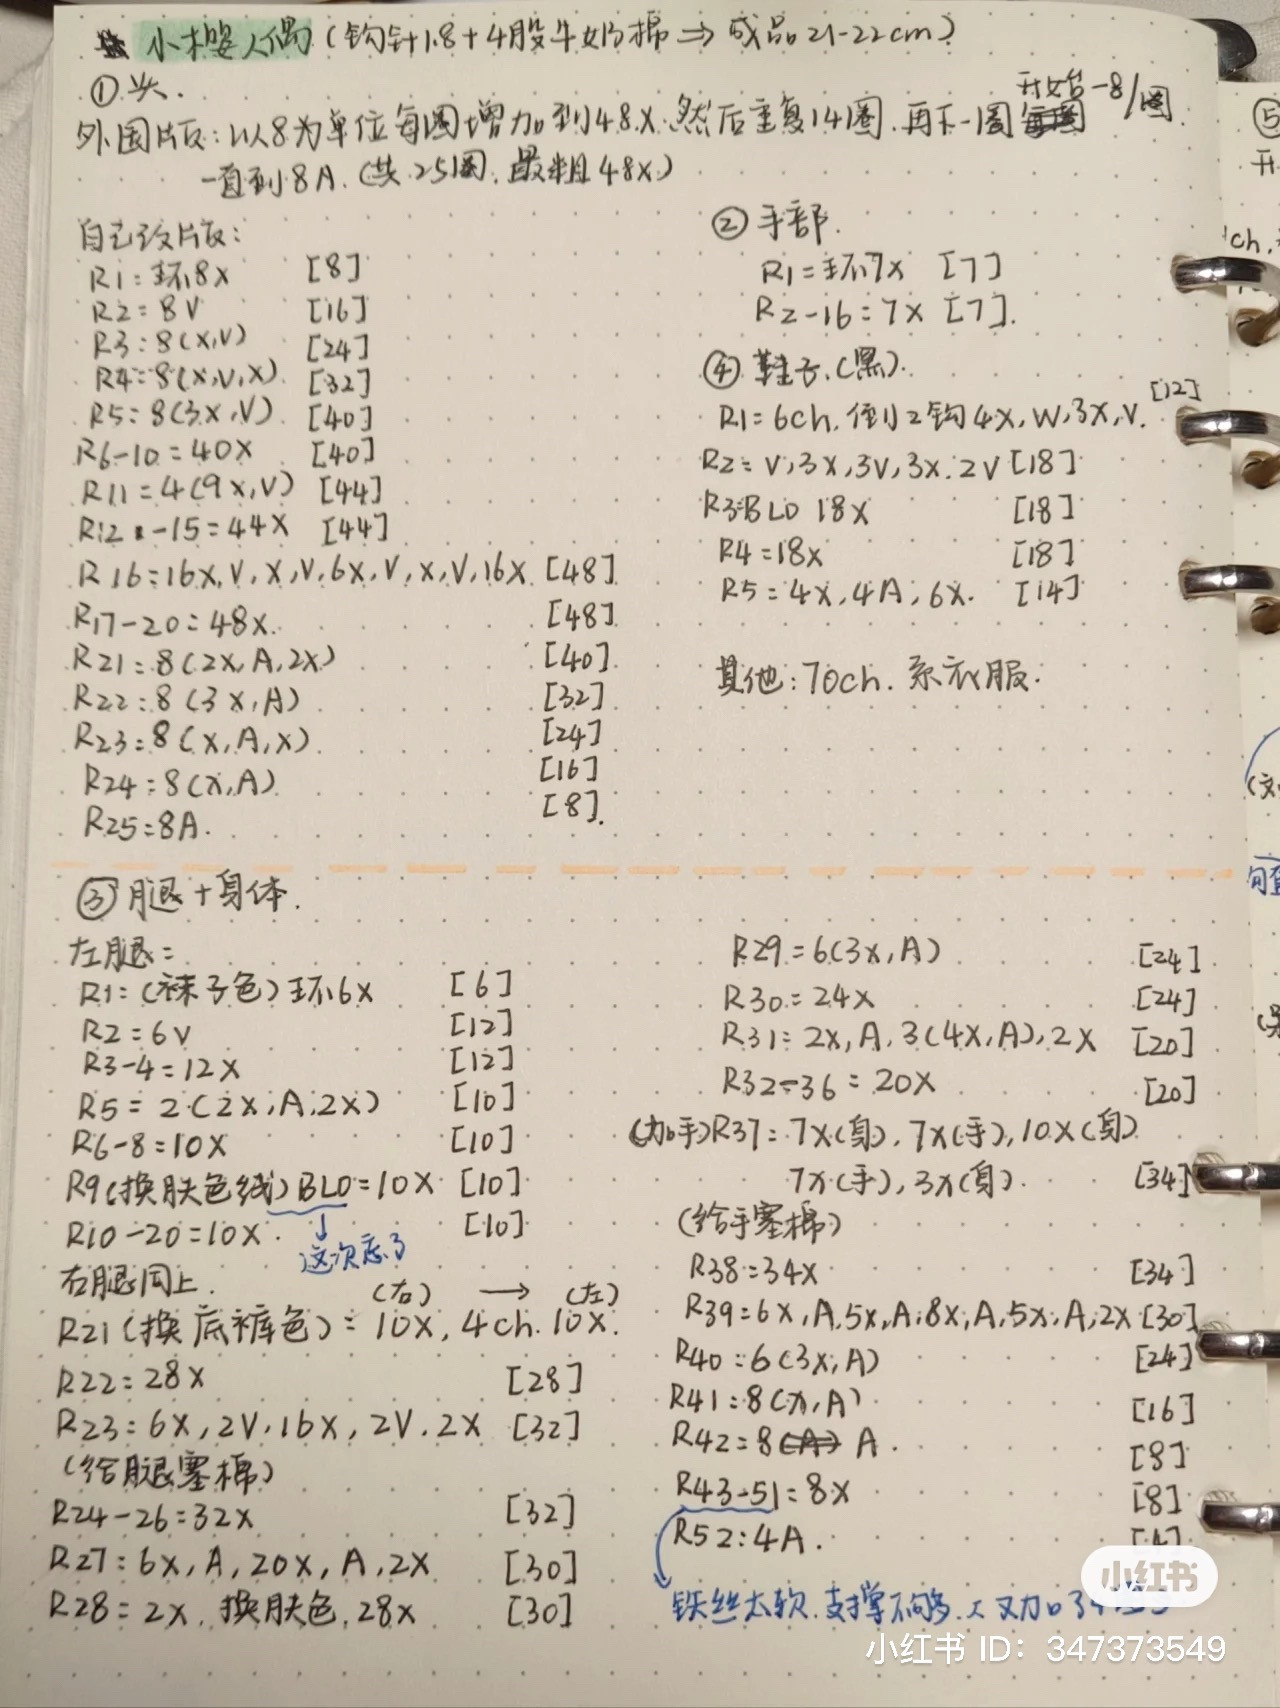 小樱人偶(钩针1.8+4股牛奶棉⇒成品21-22cm)
①头.
外国版:以8为单位每圈增加到48X.然后重复14圈.再下一圈开始-8/圈
一直到8A.(共25圈,最粗48X)
自己改版:
R1=环8X [8]
R2=8V [16]
R3:8(X,V) [24]
R4=8(X,V,X) [32]
R5:8(3X,V) [40]
R6-10=40X [40]
R11=4(9X,V) [44]
R12-15=44X [44]
R16=16X,V,X,V,6X,V,X,V,16X [48]
R17-20=48X. [48]
R21:8(2X,A,2X) [40]
R22=8(3X,A) [32]
R23=8(X,A,X) [24]
R24:8(X,A) [16]
R25=8A. [8].
②手部.
R1=环7X [7]
R2-16=7X [7].
④鞋子.(黑).
R1=6ch,倒2钩4X,W,3X,V. [12]
R2=V,3X,3V,3X.2V [18]
R3=BLO 18X [18]
R4=18X [18]
R5:4X,4A,6X. [14]
其他:70ch.系衣服.
③腿+身体.
左腿=
R1=(袜子色)环6X [6]
R2=6V [12]
R3-4=12X [12]
R5=2(2X,A,2X) [10]
R6-8=10X [10]
R9(换肤色线)BLO=10X [10]
R10-20=10X. [10]
↓
这次忘了
右腿同上.
(右) → (左)
R21(换底裤色)=10X,4ch.10X.
R22=28X [28]
R23=6X,2V.16X,2V.2X [32]
(给腿塞棉)
R24-26=32X [32]
R27:6X,A,20X,A,2X [30]
R28=2X.换肤色.28X [30]
R29=6(3X,A) [24]
R30=24X [24]
R31=2X,A,3(4X,A),2X [20]
R32-36=20X [20]
(加手)R37=7X(身),7X(手),10X(身)
7X(手),3X(身). [34]
(给手塞棉)
R38=34X [34]
R39=6X,A,5X,A,8X,A,5X,A,2X [30]
R40=6(3X,A) [24]
R41=8(X,A) [16]
R42=8A. [8]
R43-51=8X [8]
R52:4A.
铁丝太软.支撑不够.又加
小红书
小红书 ID：347373549
⑤